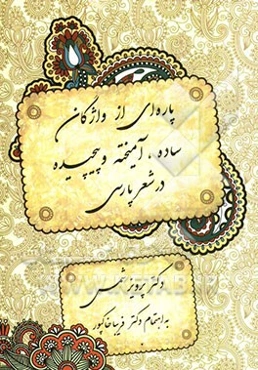 پاره‌ای از واژگان
ساده ، آمیخته و پیچیده
در شعر پارسی
دکتر پرویز شمس
به اهتمام دکتر فریبا خاکپور